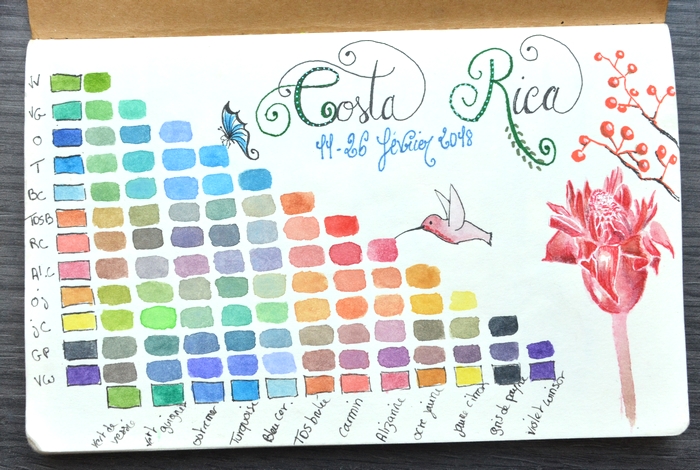 Costa Rica
11-26 février 2018
VV
VG
O
T
BC
TOSB
RC
Al.C
Oj
jC
GP
VW
vert de vessie
vert
outremer
Turquoise
Bleu
TOS brulée
Carmin
Alizarine
ocre jaune
jaune citron
gris de payne
violet winsor